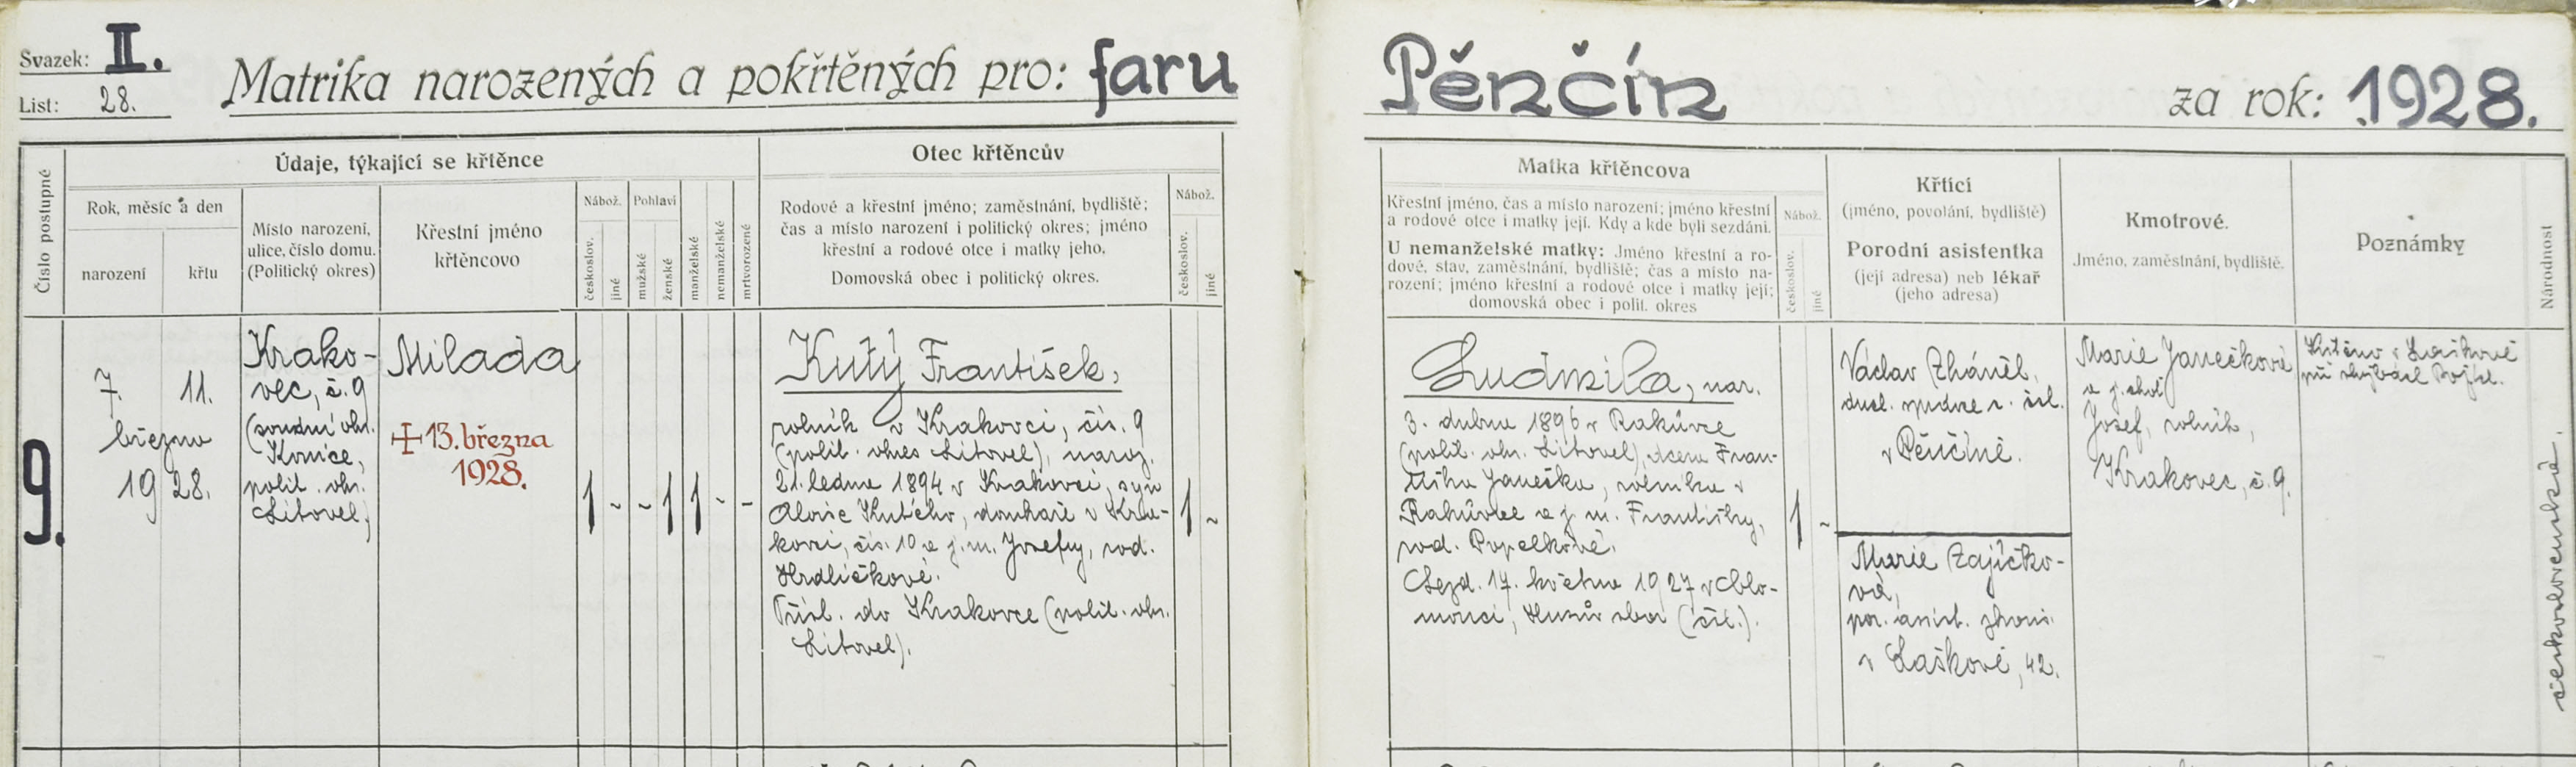 Svazek: II.
List: 28.
Matrika narozených a pokřtěných pro: faru Pěnčín za rok: 1928.
Číslo postupné
Údaje, týkající se křtěnce
Rok, měsíc a den
narození
křtu
Místo narození,
ulice, číslo domu.
(Politický okres)
Křestní jméno
křtěncovo
Nábož.
českoslov.
jiné
Pohlaví
mužské
ženské
manželské
nemanželské
mrtvorozené
Otec křtěncův
Rodové a křestní jméno; zaměstnání, bydliště;
čas a místo narození i politický okres; jméno
křestní a rodové otce i matky jeho.
Domovská obec i politický okres.
Nábož.
českoslov.
jiné
Matka křtěncova
Křestní jméno, čas a místo narození; jméno křestní
a rodové otce i matky její. Kdy a kde byli sezdáni.
U nemanželské matky: Jméno křestní a ro-
dové, stav, zaměstnání, bydliště; čas a místo na-
rození; jméno křestní a rodové otce i matky její;
domovská obec i polit. okres
Nábož.
českoslov.
jiné
Křticí
(jméno, povolání, bydliště)
Porodní asistentka
(její adresa) neb lékař
(jeho adresa)
Kmotrové.
Jméno, zaměstnání, bydliště.
Poznámky
Národnost
9.
7. 11.
března
1928.
Krako-
vec, č. 9
(soudní okr.
Konice,
polit. okr.
Litovel)
Milada
+ 13. března
1928.
1 - - 1 1 - -
Kutý František,
rolník v Krakovci, čís. 9
(polit. okres Litovel), naroz.
21. ledna 1894 v Krakovci, syn
Aloise Kutého, domkaře v Kra-
kovci, čís. 10 a j. m. Josefy, rod.
Hrdličkové.
Přísl. do Krakovce (polit. okr.
Litovel).
1 -
Ludmila, nar.
3. dubna 1896 v Rakůvce
(polit. okr. Litovel), dcera Fran-
tiška Janečka, rolníka v
Rakůvce a j. m. Františky,
rod. Popelkové.
Sezd. 17. května 1927 v Olo-
mouci, Husův sbor (čsl.).
1 -
Václav Zháněl,
duch. správce n. čsl.
v Pěnčíně.
Marie Zajíčko-
vá,
por. asist. zkouš.
v Laškově, 42.
Marie Janečková
a j. choť
Josef, rolník,
Krakovec, č. 9.
Křtěno v Laškově
při
československá.